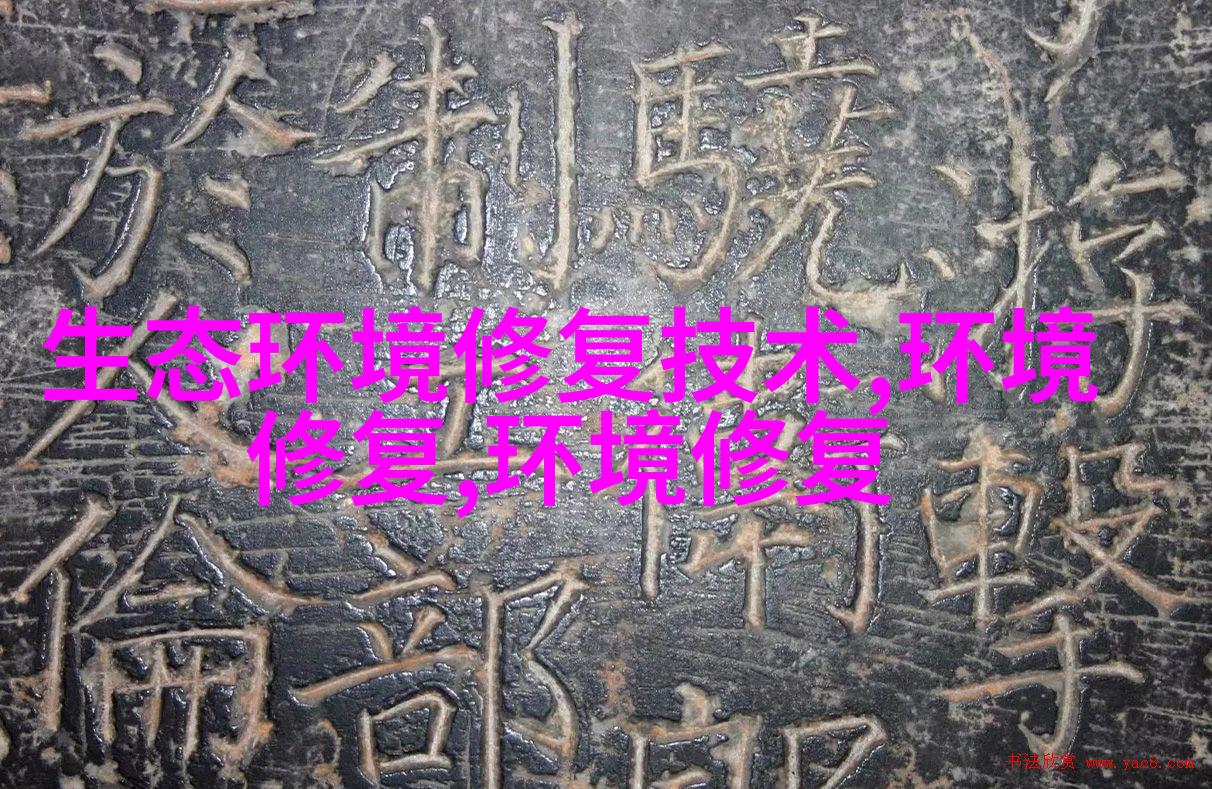 生态环境修复技术,环境
修复,环境修复
游擊
驍
制部
於人倫
书法欣赏 www.yac8.com